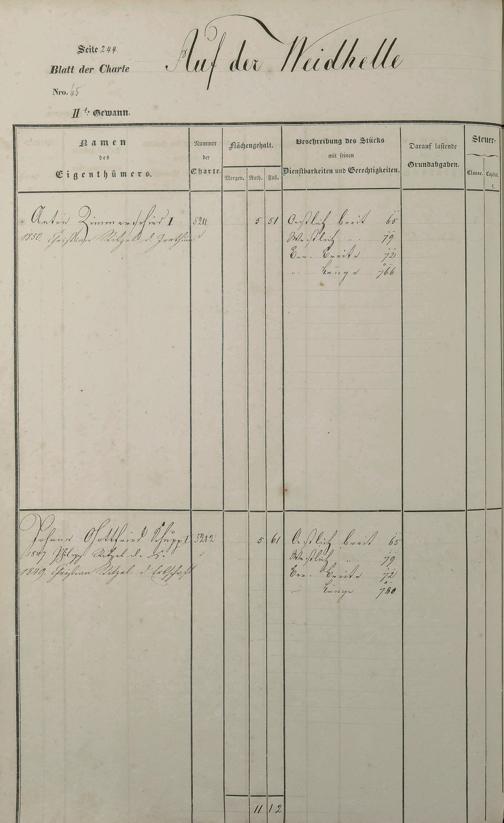 Seite 244
Auf der Weidhelle
Blatt der Charte
Nro. 65
IIte Gewann.
Namen des Eigenthümers.
Nummer der Charte.
Flächengehalt.
Morgen. Ruth. Fuß.
Beschreibung des Stücks mit seinen Dienstbarkeiten und Gerechtigkeiten.
Darauf lastende Grundabgaben.
Steuer-
Classe. Capital.
Anton Zimmerschied 1 5 51 Oestlich breit 65
1850. Christian Witzel d. Westlich 79
Breite 72
Länge 766
Johann Gottfried 5 61 Oestlich breit 65
1847 Philipp Witzel d. Westlich 79
1849. Christian Witzel d. Erbschaft Breite 72
Länge 780
11 12